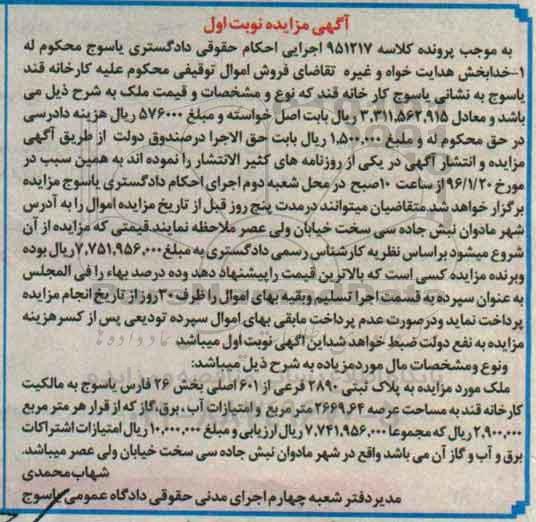 آگهی مزایده نوبت اول
به موجب پرونده کلاسه ۹۵۱۲۱۷ اجرایی احکام حقوقی دادگستری یاسوج محکوم له
۱-خدابخش هدایت خواه و غیره تقاضای فروش اموال توقیفی محکوم علیه کارخانه قند
یاسوج به نشانی یاسوج کار خانه قند که نوع و مشخصات و قیمت ملک به شرح ذیل می
باشد و معادل ۳،۳۱۱،۵۶۲،۹۱۵ ریال بابت اصل خواسته و مبلغ ۵۷۶۰۰۰ ریال هزینه دادرسی
در حق محکوم له و ملبغ ۱،۵۰۰،۰۰۰ ریال بابت حق الاجرا درصندوق دولت از طریق آگهی
مزایده و انتشار آگهی در یکی از روزنامه های کثیر الانتشار را نموده اند به همین سبب در
مورخ ۹۶/۱/۲۰ از ساعت ۱۰صبح در محل شعبه دوم اجرای احکام دادگستری یاسوج مزایده
برگزار خواهد شد متقاضیان میتوانند درمدت پنج روز قبل از تاریخ مزایده اموال را به آدرس
شهر مادوان نبش جاده سی سخت خیابان ولی عصر ملاحظه نمایند.قیمتی که مزایده از آن
شروع میشود براساس نظریه کارشناس رسمی دادگستری به مبلغ ۷،۷۵۱،۹۵۶،۰۰۰ ریال بوده
وبرنده مزایده کسی است که بالاترین قیمت را پیشنهاد دهد وده درصد بهاء را فی المجلس
به عنوان سپرده به قسمت اجرا تسلیم وبقیه بهای اموال را ظرف ۳۰ روز از تاریخ انجام مزایده
پرداخت نماید ودرصورت عدم پرداخت مابقی بهای اموال سپرده تودیعی پس از کسر هزینه
مزایده به نفع دولت ضبط خواهد شداین اگهی نوبت اول میباشد
ونوع ومشخصات مال موردمزیاده به شرح ذیل میباشد:
ملک مورد مزایده به پلاک ثبتی ۲۸۹۰ فرعی از ۶۰۱ اصلی بخش ۲۶ فارس یاسوج به مالکیت
کارخانه قند به مساحت عرصه ۲۶۶۹،۶۴ متر مربع و امتیازات آب، برق،گاز که از قرار هر متر مربع
۲،۹۰۰،۰۰۰ ریال که مجموعا ۷،۷۴۱،۹۵۶،۰۰۰ ریال ارزیابی و مبلغ ۱۰،۰۰۰،۰۰۰ ریال امتیازات اشتراکات
برق و آب و گاز آن می باشد واقع در شهر مادوان نبش جاده سی سخت خیابان ولی عصر میباشد.
شهاب محمدی
مدیر دفتر شعبه چهارم اجرای مدنی حقوقی دادگاه عمومی یاسوج